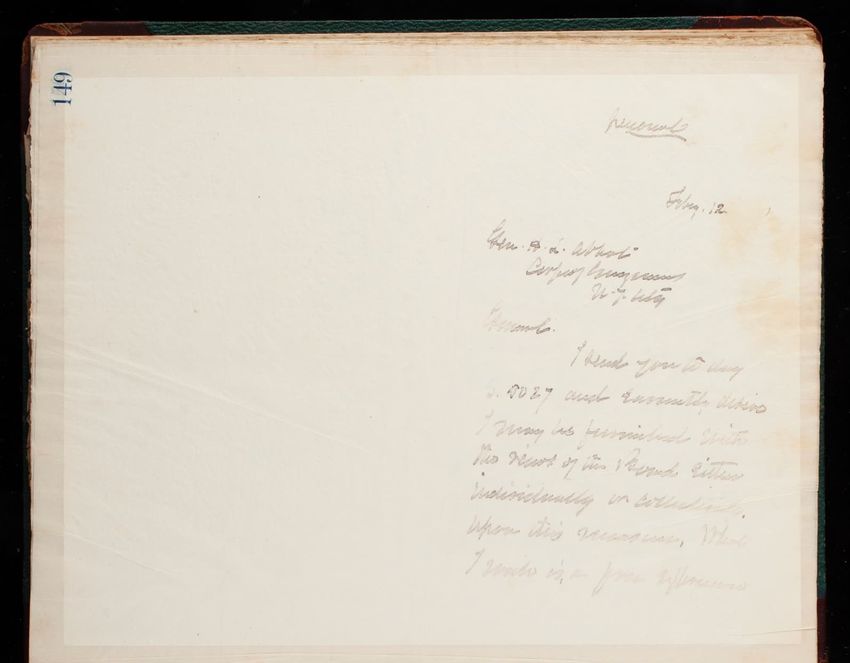 149
Personal
Feby. 12
Gen. H. L. Abbot
Corps of Engineers
N. Y. City
General.
I send you to day
S. 5027 and earnestly desire
I may be furnished with
the views of the Board either
individually or collectively
upon this measure. What
I want is, a free